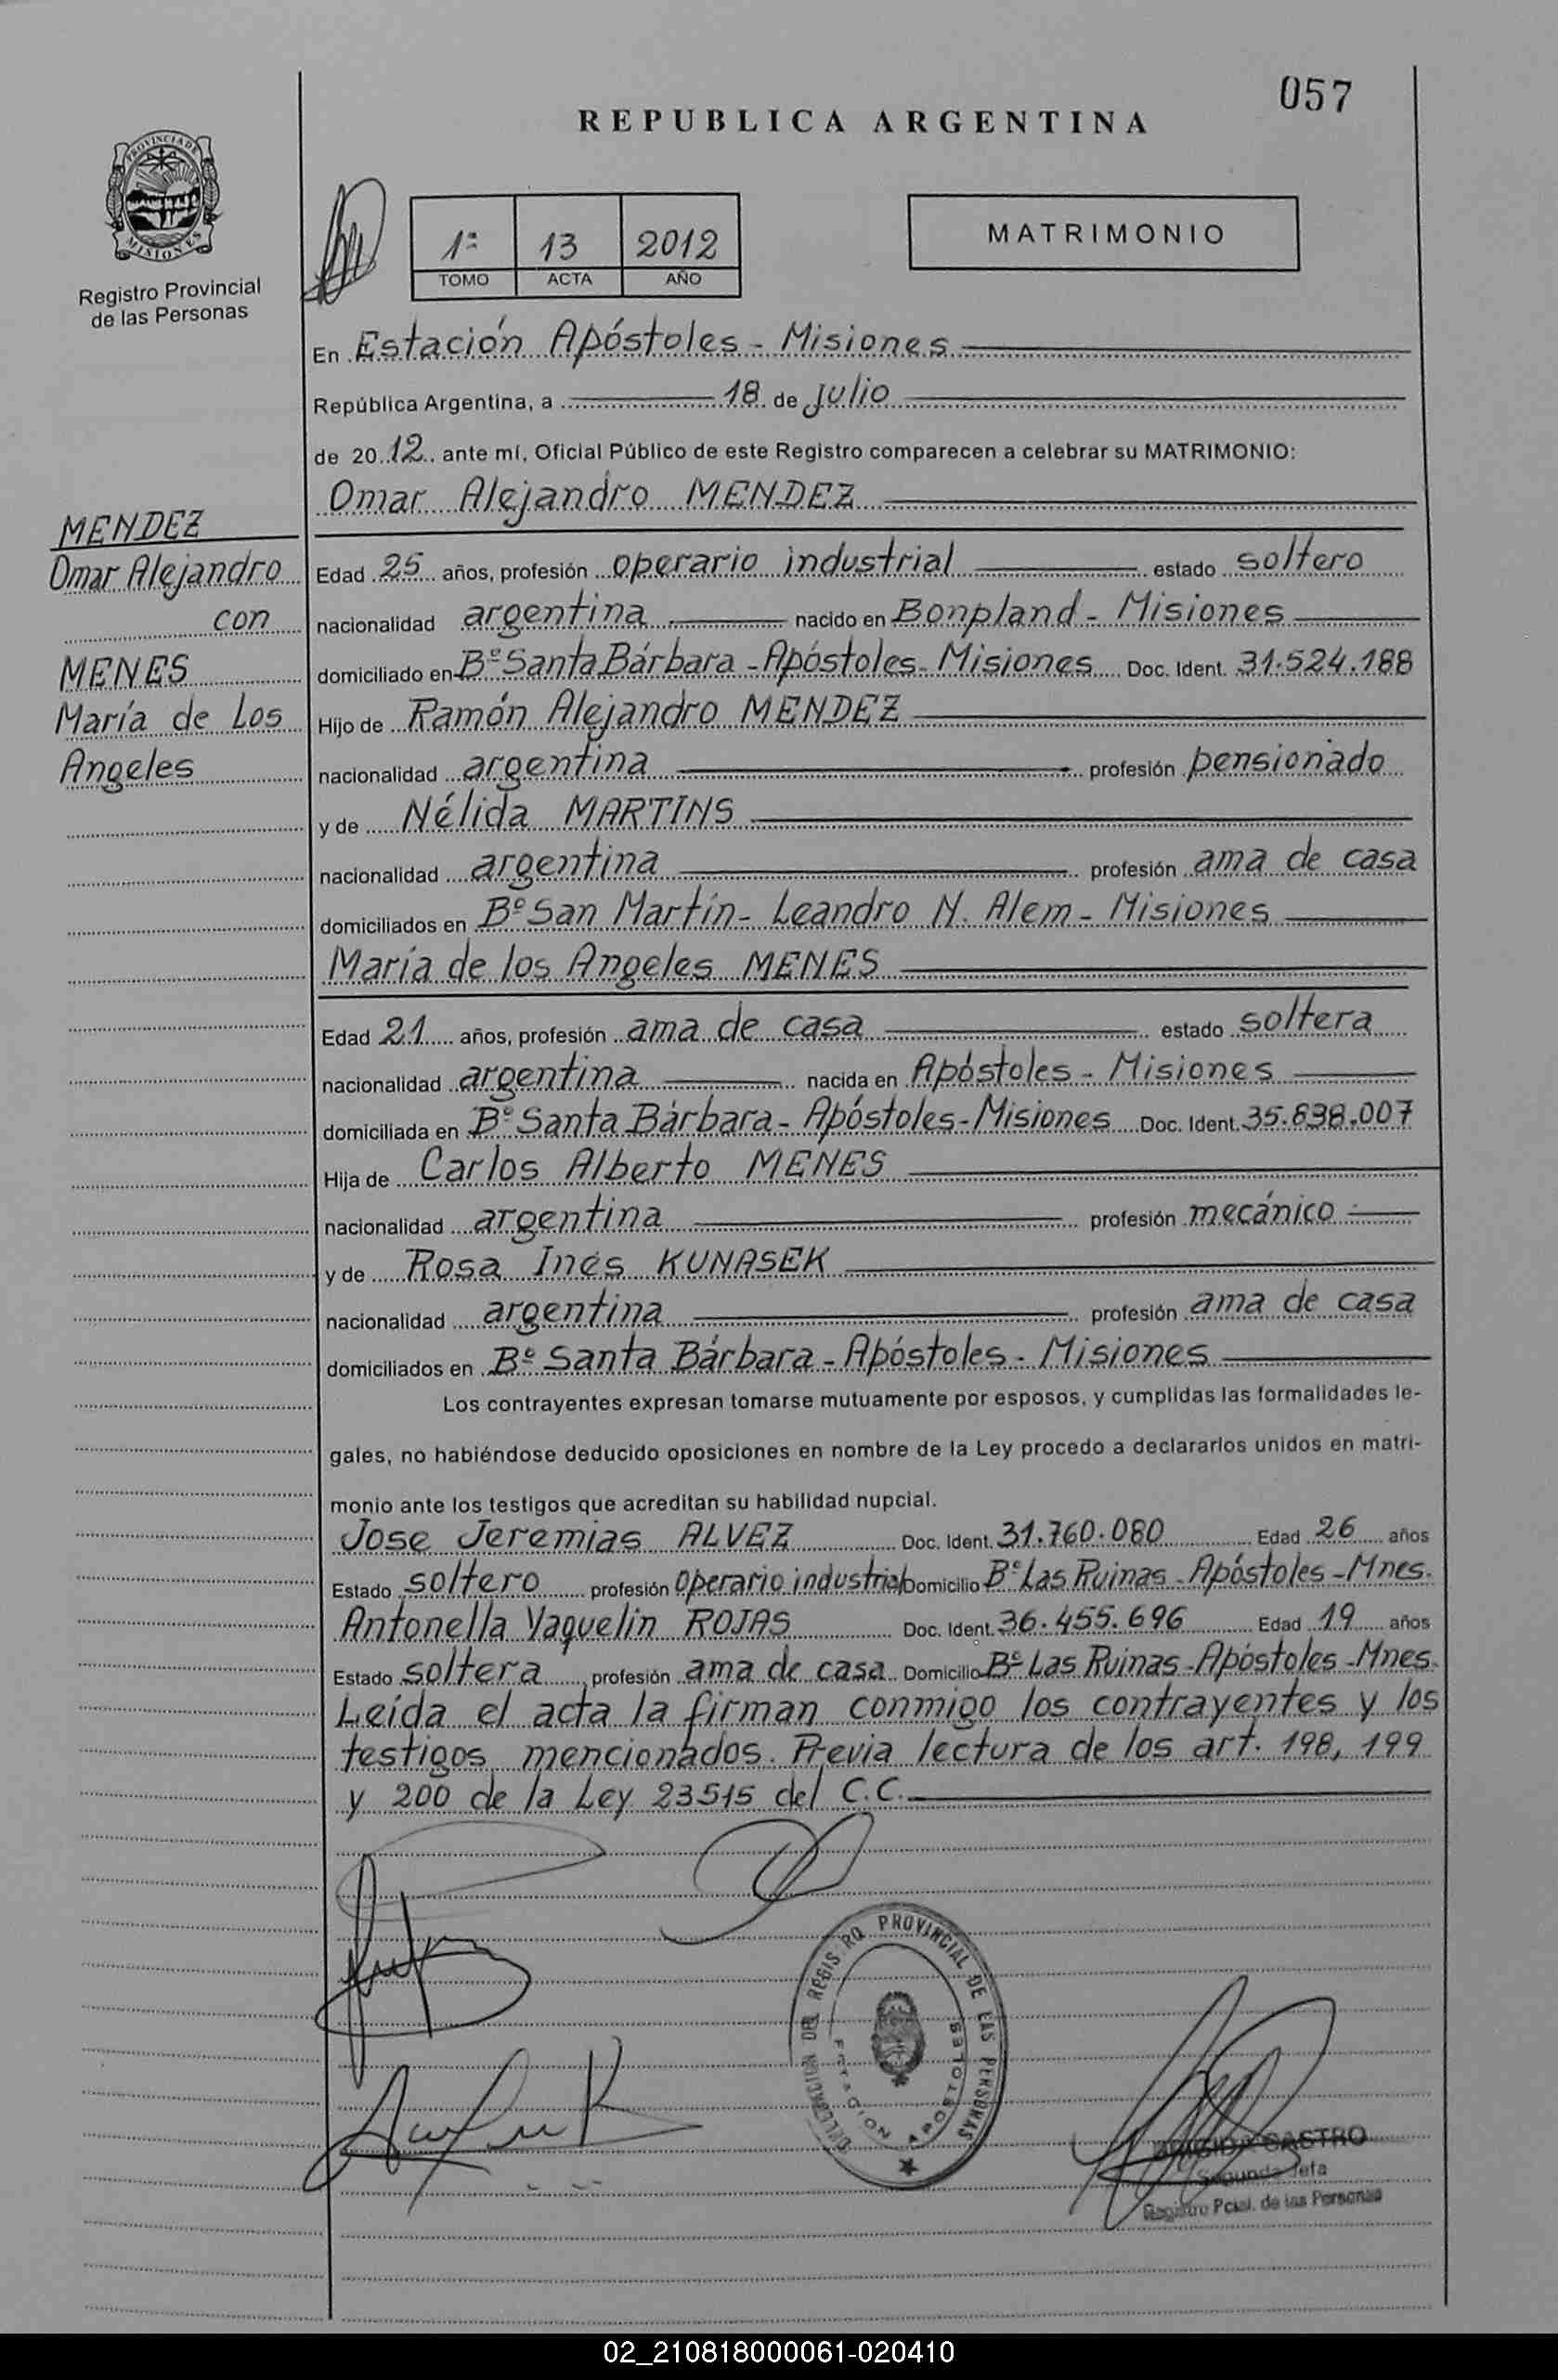 057
REPUBLICA ARGENTINA
PROVINCIA DE
MISIONES
Registro Provincial
de las Personas
1º 13 2012
TOMO ACTA AÑO
MATRIMONIO
En Estación Apóstoles - Misiones
República Argentina, a 18 de julio
de 2012 ante mí, Oficial Público de este Registro comparecen a celebrar su MATRIMONIO:
Omar Alejandro MENDEZ
MENDEZ
Omar Alejandro
con
MENES
María de Los
Angeles
Edad 25 años, profesión operario industrial estado soltero
nacionalidad argentina nacido en Bonpland - Misiones
domiciliado en Bº Santa Bárbara - Apóstoles - Misiones Doc. Ident. 31.524.188
Hijo de Ramón Alejandro MENDEZ
nacionalidad argentina profesión pensionado
y de Nélida MARTINS
nacionalidad argentina profesión ama de casa
domiciliados en Bº San Martín - Leandro N. Alem - Misiones
María de los Angeles MENES
Edad 21 años, profesión ama de casa estado soltera
nacionalidad argentina nacida en Apóstoles - Misiones
domiciliada en Bº Santa Bárbara - Apóstoles - Misiones Doc. Ident. 35.838.007
Hija de Carlos Alberto MENES
nacionalidad argentina profesión mecánico
y de Rosa Inés KUNASEK
nacionalidad argentina profesión ama de casa
domiciliados en Bº Santa Bárbara - Apóstoles - Misiones
Los contrayentes expresan tomarse mutuamente por esposos, y cumplidas las formalidades le-
gales, no habiéndose deducido oposiciones en nombre de la Ley procedo a declararlos unidos en matri-
monio ante los testigos que acreditan su habilidad nupcial.
Jose Jeremias ALVEZ Doc. Ident. 31.760.080 Edad 26 años
Estado soltero profesión operario industrial Domicilio Bº Las Ruinas - Apóstoles - Mnes.
Antonella Yaquelin ROJAS Doc. Ident. 36.455.696 Edad 19 años
Estado soltera profesión ama de casa Domicilio Bº Las Ruinas - Apóstoles - Mnes.
Leída el acta la firman conmigo los contrayentes y los
testigos mencionados. Previa lectura de los art. 198, 199
y 200 de la Ley 23515 del C.C.
DEL REGISTRO PROVINCIAL DE LAS PERSONAS
ESTACION APOSTOLES
CASTRO
Segunda Jefa
Registro Pcial. de las Personas
02_210818000061-020410